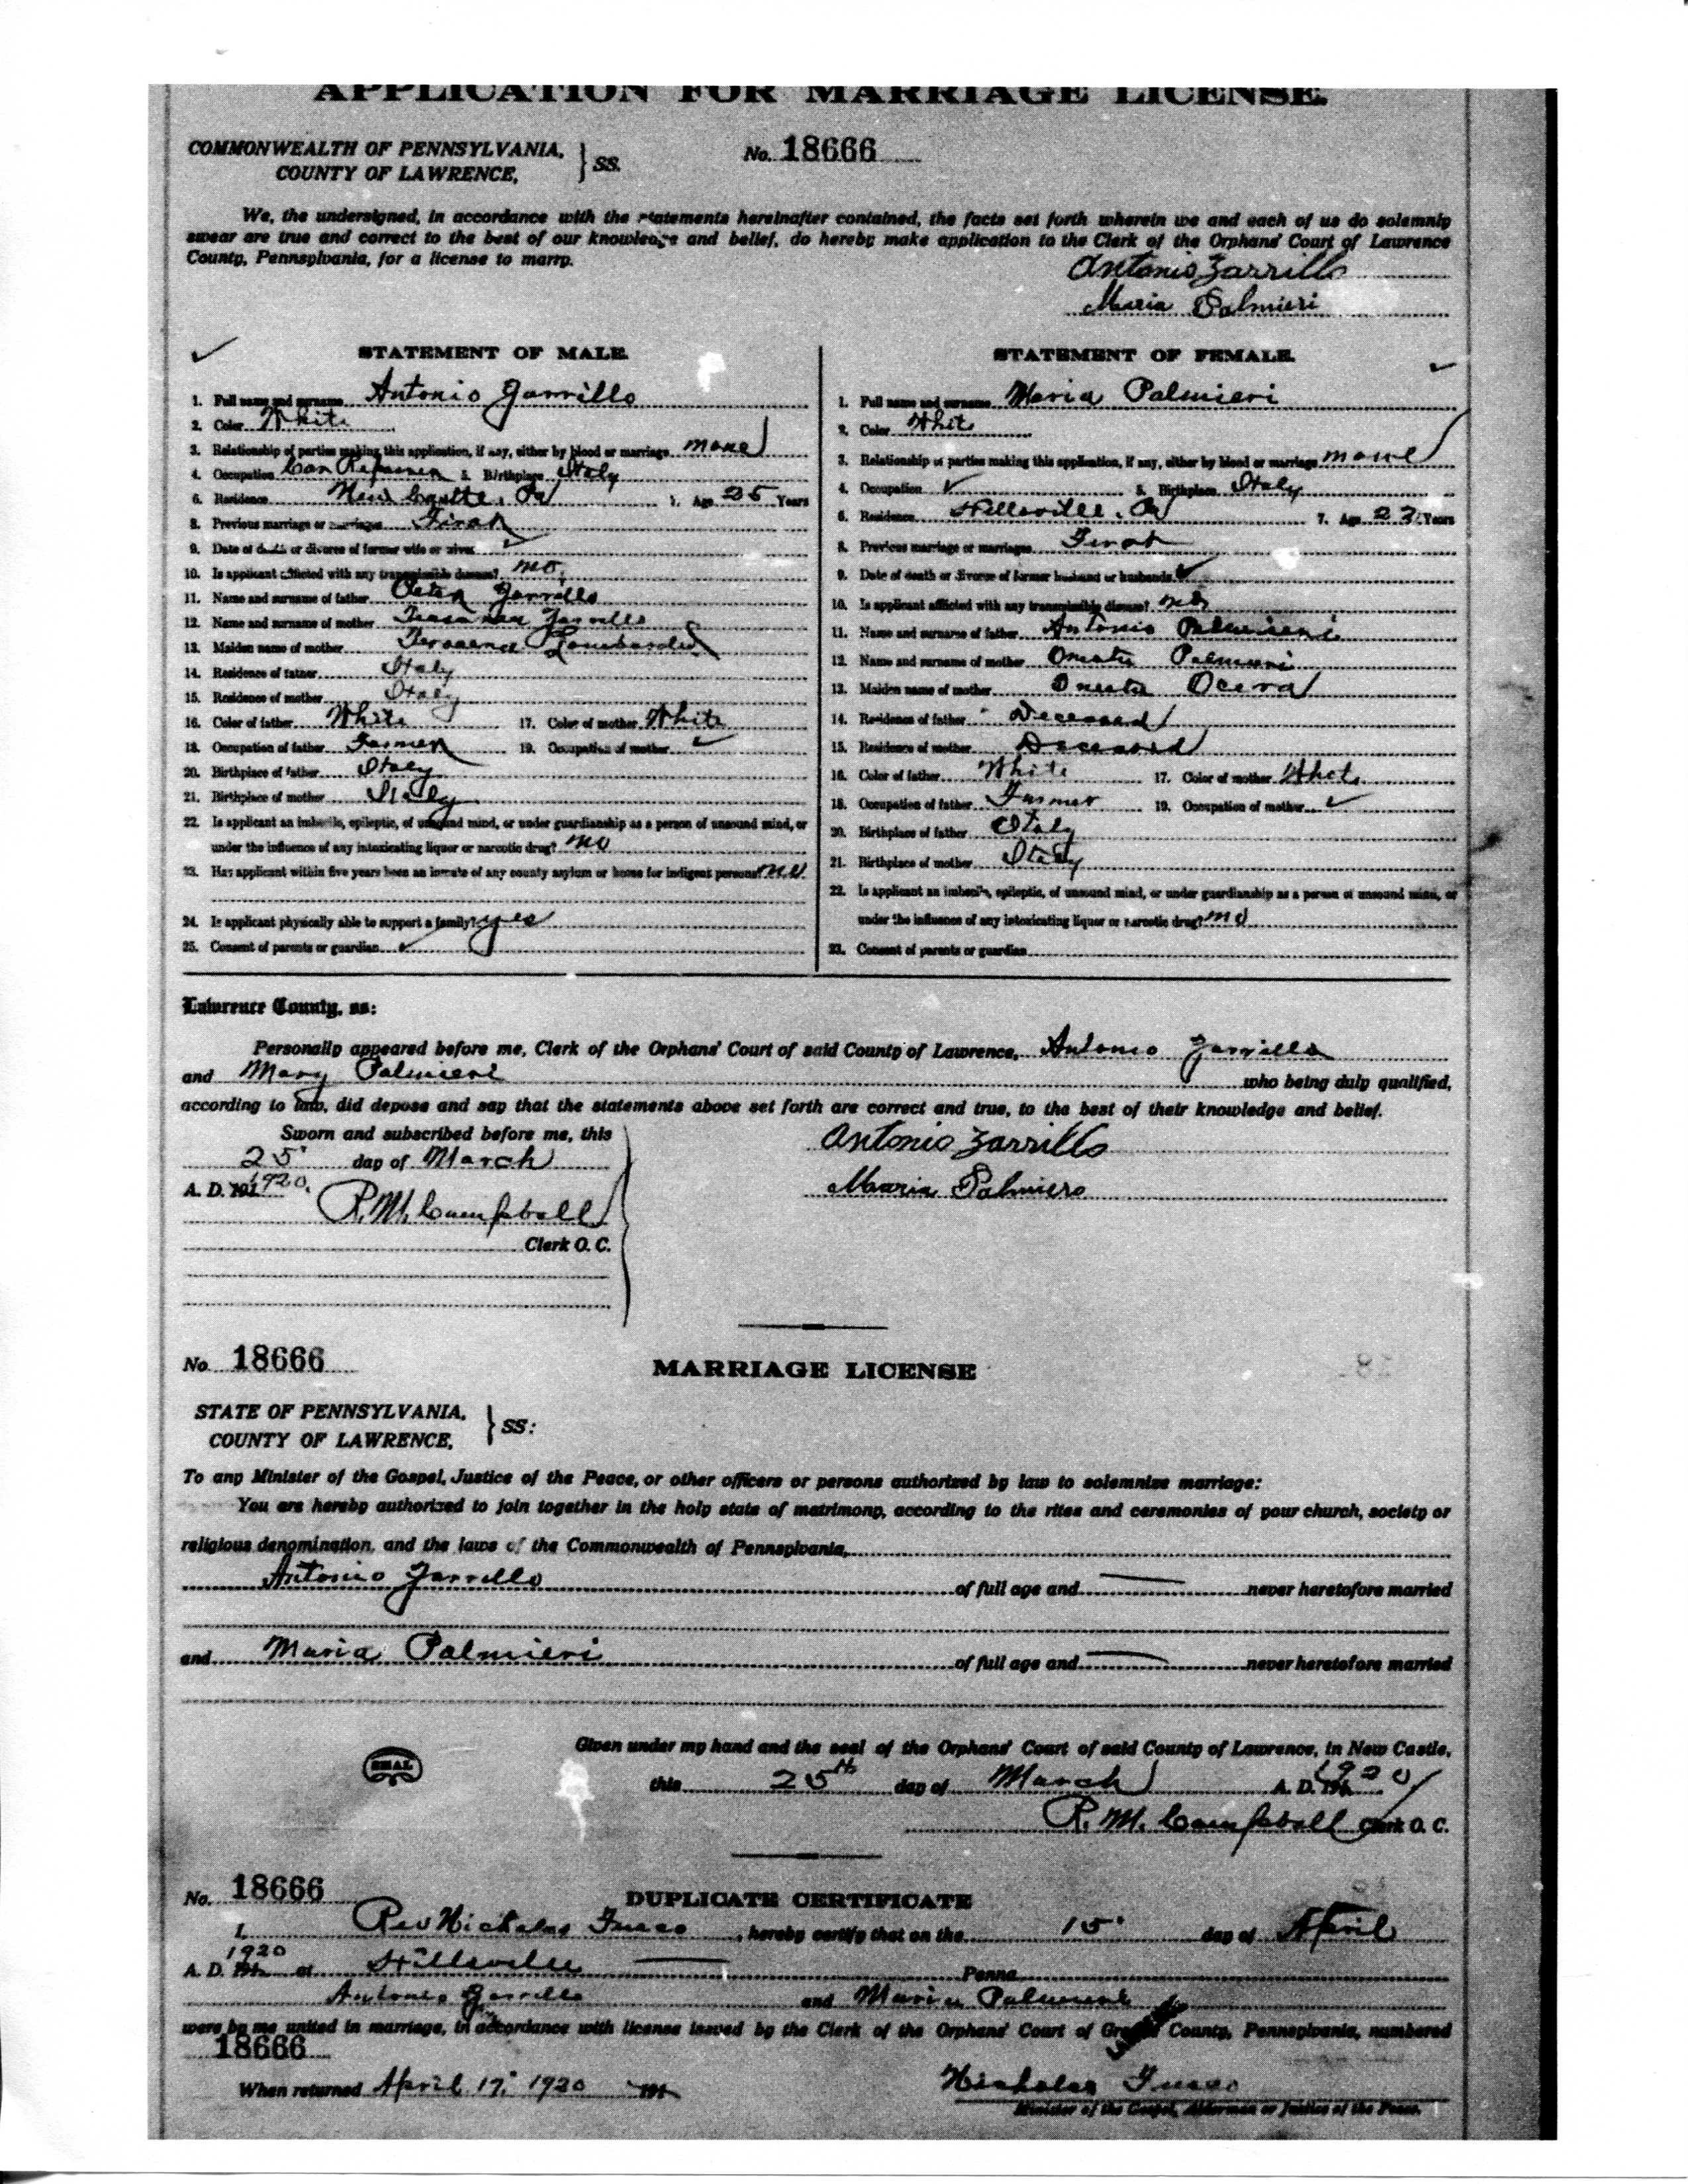 APPLICATION FOR MARRIAGE LICENSE.
COMMONWEALTH OF PENNSYLVANIA,
COUNTY OF LAWRENCE,
} SS.
No. 18666
We, the undersigned, in accordance with the statements hereinafter contained, the facts set forth wherein we and each of us do solemnly
swear are true and correct to the best of our knowledge and belief, do hereby make application to the Clerk of the Orphans' Court of Lawrence
County, Pennsylvania, for a license to marry.
Antonio Zarrillo
Maria Palmieri
STATEMENT OF MALE.
1. Full name and surname Antonio Zarrillo
2. Color White
3. Relationship of parties making this application, if any, either by blood or marriage. none
4. Occupation Car Repairer 5. Birthplace Italy
6. Residence New Castle, Pa 7. Age 25 Years
8. Previous marriage or marriages First
9. Date of death or divorce of former wife or wives ✓
10. Is applicant afflicted with any transmissible disease? no
11. Name and surname of father Peter Zarrillo
12. Name and surname of mother Zarrillo
13. Maiden name of mother Lombardi
14. Residence of father Italy
15. Residence of mother Italy
16. Color of father White 17. Color of mother White
18. Occupation of father Farmer 19. Occupation of mother ✓
20. Birthplace of father Italy
21. Birthplace of mother Italy
22. Is applicant an imbecile, epileptic, of unsound mind, or under guardianship as a person of unsound mind, or
under the influence of any intoxicating liquor or narcotic drug? no
23. Has applicant within five years been an inmate of any county asylum or home for indigent persons? no
24. Is applicant physically able to support a family? yes
25. Consent of parents or guardian ✓
STATEMENT OF FEMALE.
1. Full name and surname Maria Palmieri
2. Color White
3. Relationship of parties making this application, if any, either by blood or marriage none
4. Occupation ✓ 5. Birthplace Italy
6. Residence Hillsville, Pa 7. Age 23 Years
8. Previous marriage or marriages First
9. Date of death or divorce of former husband or husbands ✓
10. Is applicant afflicted with any transmissible disease? no
11. Name and surname of father Antonio Palmieri
12. Name and surname of mother Palmieri
13. Maiden name of mother Ocera
14. Residence of father Deceased
15. Residence of mother Deceased
16. Color of father White 17. Color of mother White
18. Occupation of father Farmer 19. Occupation of mother ✓
20. Birthplace of father Italy
21. Birthplace of mother Italy
22. Is applicant an imbecile, epileptic, of unsound mind, or under guardianship as a person of unsound mind, or
under the influence of any intoxicating liquor or narcotic drug? no
23. Consent of parents or guardian
Lawrence County, ss:
Personally appeared before me, Clerk of the Orphans' Court of said County of Lawrence, Antonio Zarrillo
and Mary Palmieri who being duly qualified,
according to law, did depose and say that the statements above set forth are correct and true, to the best of their knowledge and belief.
Sworn and subscribed before me, this
25 day of March
A. D. 1920.
R. M. Campbell
Clerk O. C.
Antonio Zarrillo
Maria Palmiero
No. 18666
MARRIAGE LICENSE
STATE OF PENNSYLVANIA,
COUNTY OF LAWRENCE,
} SS:
To any Minister of the Gospel, Justice of the Peace, or other officers or persons authorized by law to solemnize marriage:
You are hereby authorized to join together in the holy state of matrimony, according to the rites and ceremonies of your church, society or
religious denomination, and the laws of the Commonwealth of Pennsylvania,
Antonio Zarrillo of full age and never heretofore married
and Maria Palmieri of full age and never heretofore married
SEAL
Given under my hand and the seal of the Orphans' Court of said County of Lawrence, in New Castle,
this 25th day of March A. D. 1920
R. M. Campbell Clerk O. C.
No. 18666
DUPLICATE CERTIFICATE
I, Rev Nicholas Fusco, hereby certify that on the 15 day of April
A. D. 1920 at Hillsville Penna
Antonio Zarrillo and Maria Palmieri
were by me united in marriage, in accordance with license issued by the Clerk of the Orphans' Court of County, Pennsylvania, numbered
18666
When returned April 17, 1920
Nicholas Fusco
Minister of the Gospel, Alderman or Justice of the Peace.